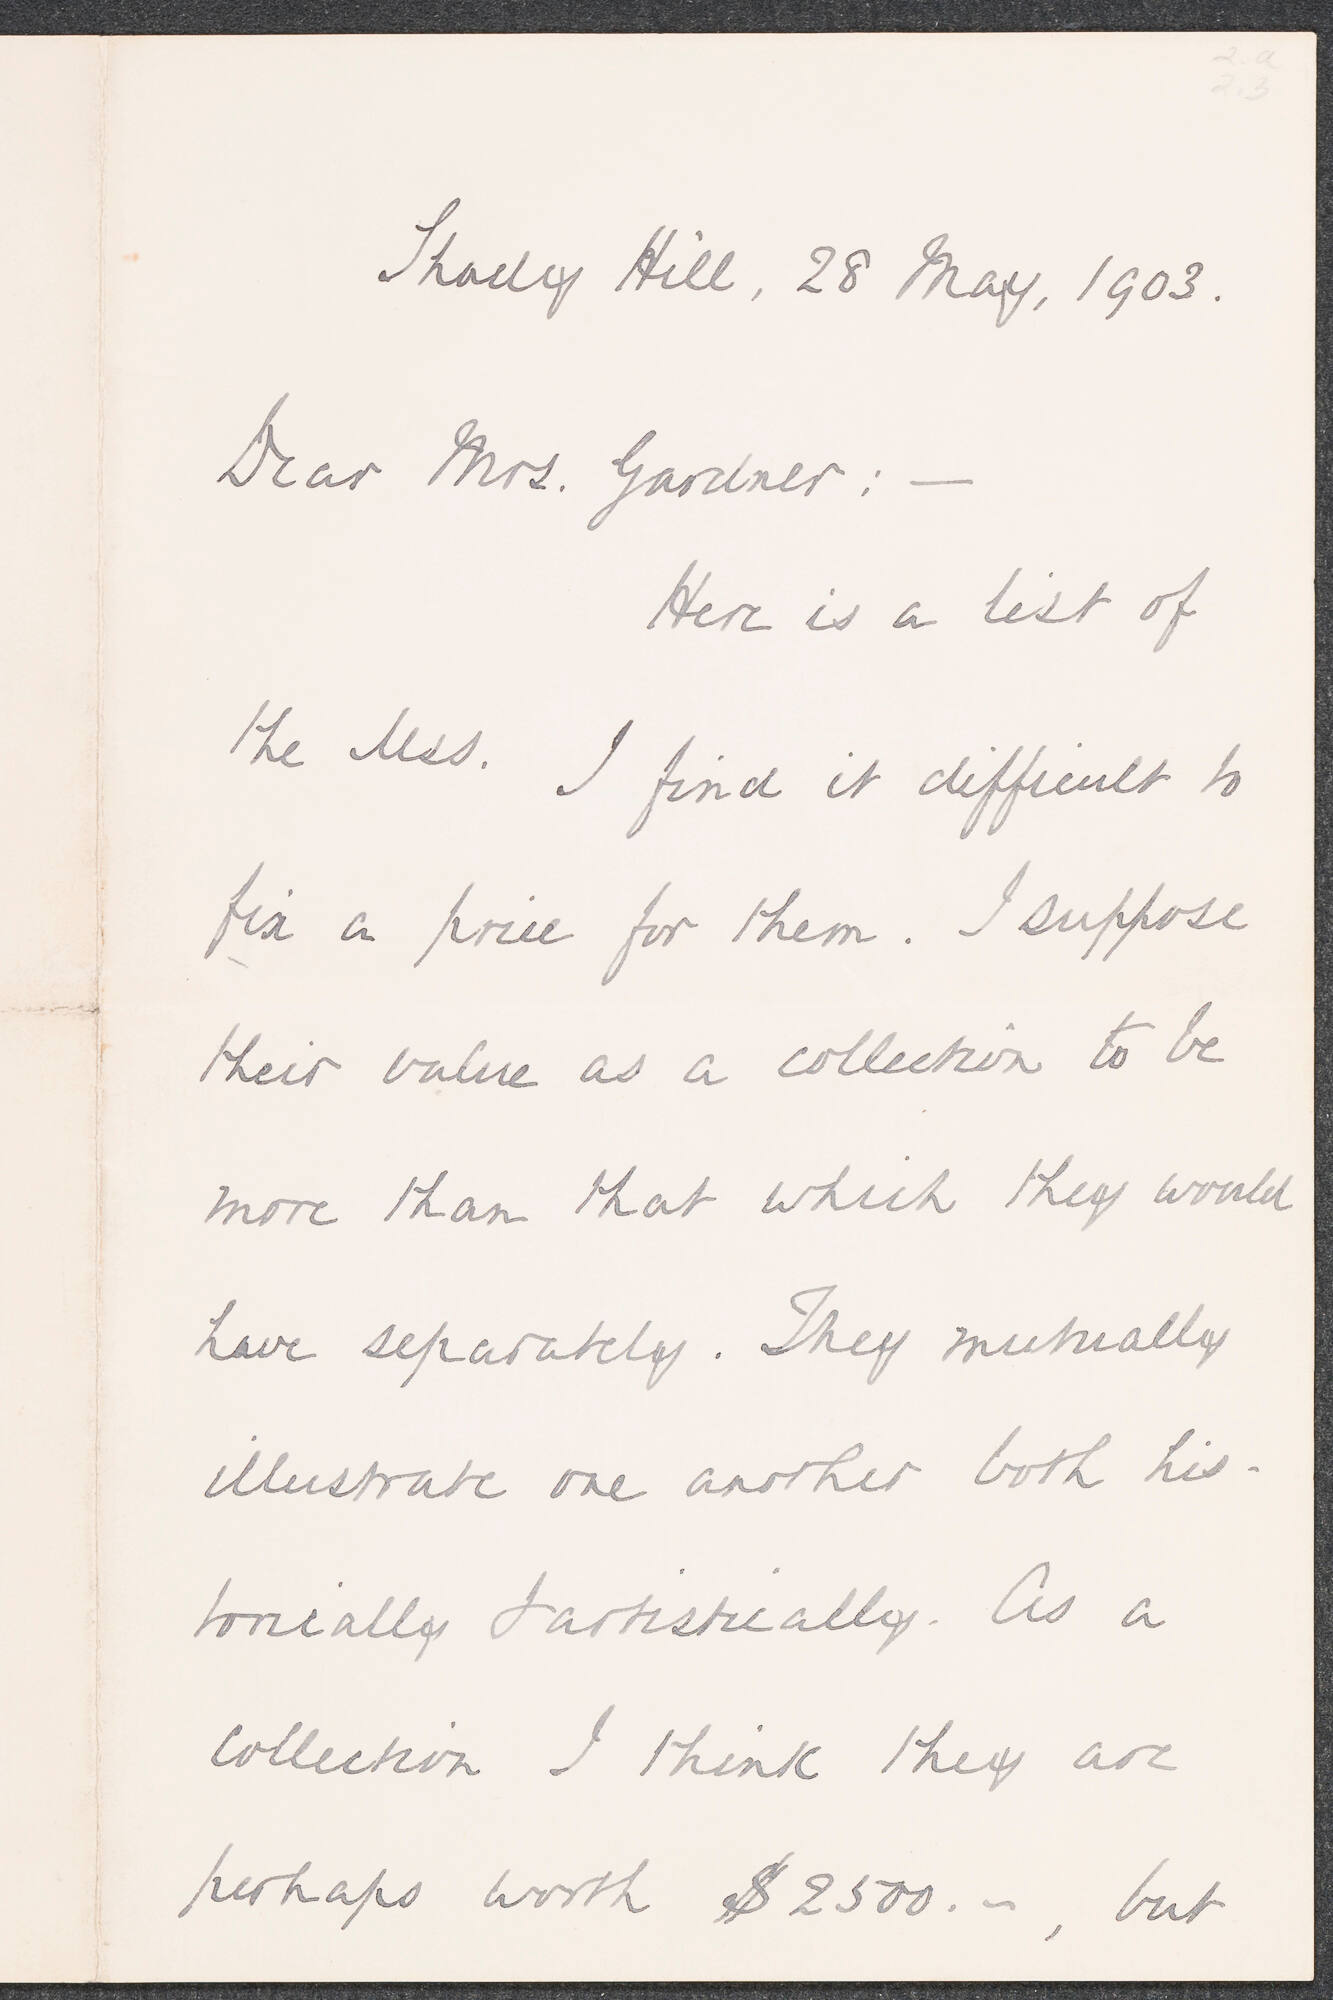 2.a
2.3
Shady Hill, 28 May, 1903.
Dear Mrs. Gardner: —
Here is a list of
the Mss. I find it difficult to
fix a price for them. I suppose
their value as a collection to be
more than that which they would
have separately. They mutually
illustrate one another both his-
torically & artistically. As a
collection I think they are
perhaps worth $2500.–, but